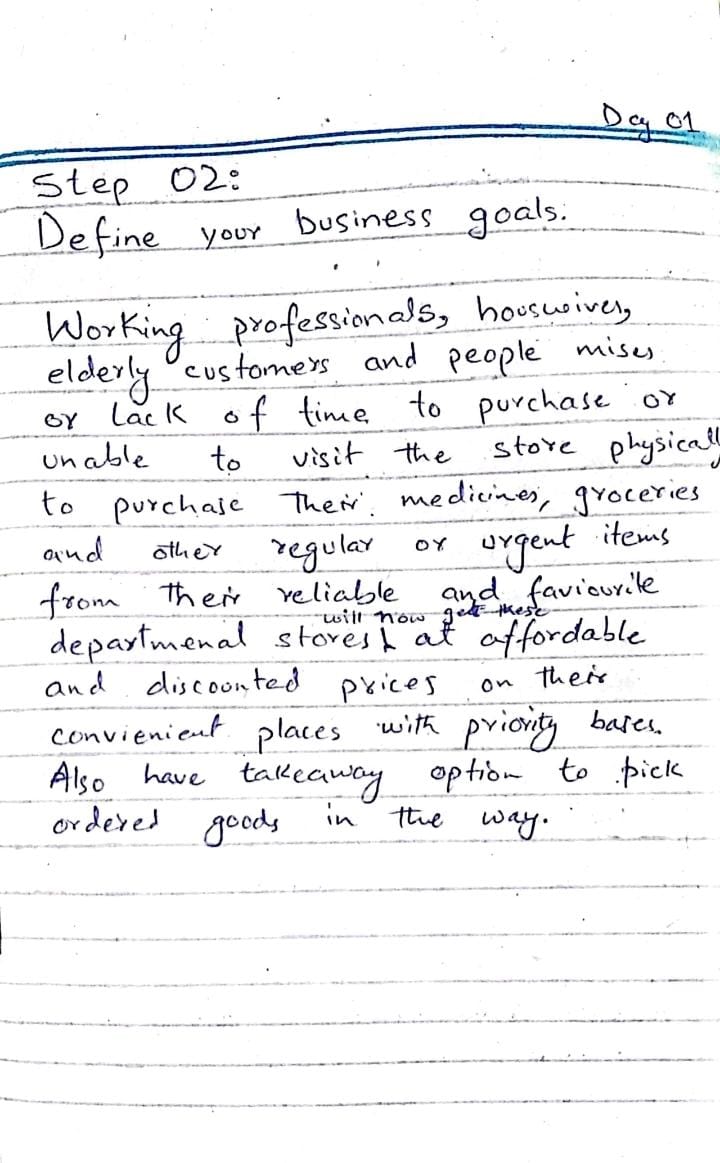 Day 01
Step 02:
Define your business goals.
Working professionals, houswives,
elderly customers and people mises
or Lack of time to purchase or
unable to visit the store physically
to purchase Their medicines, groceries
and other regular or urgent items
from Their reliable and faviourite
will now get these
departmenal stores at affordable
and discounted prices on their
convienient places with priority bases.
Also have takeaway option to pick
ordered goods in the way.